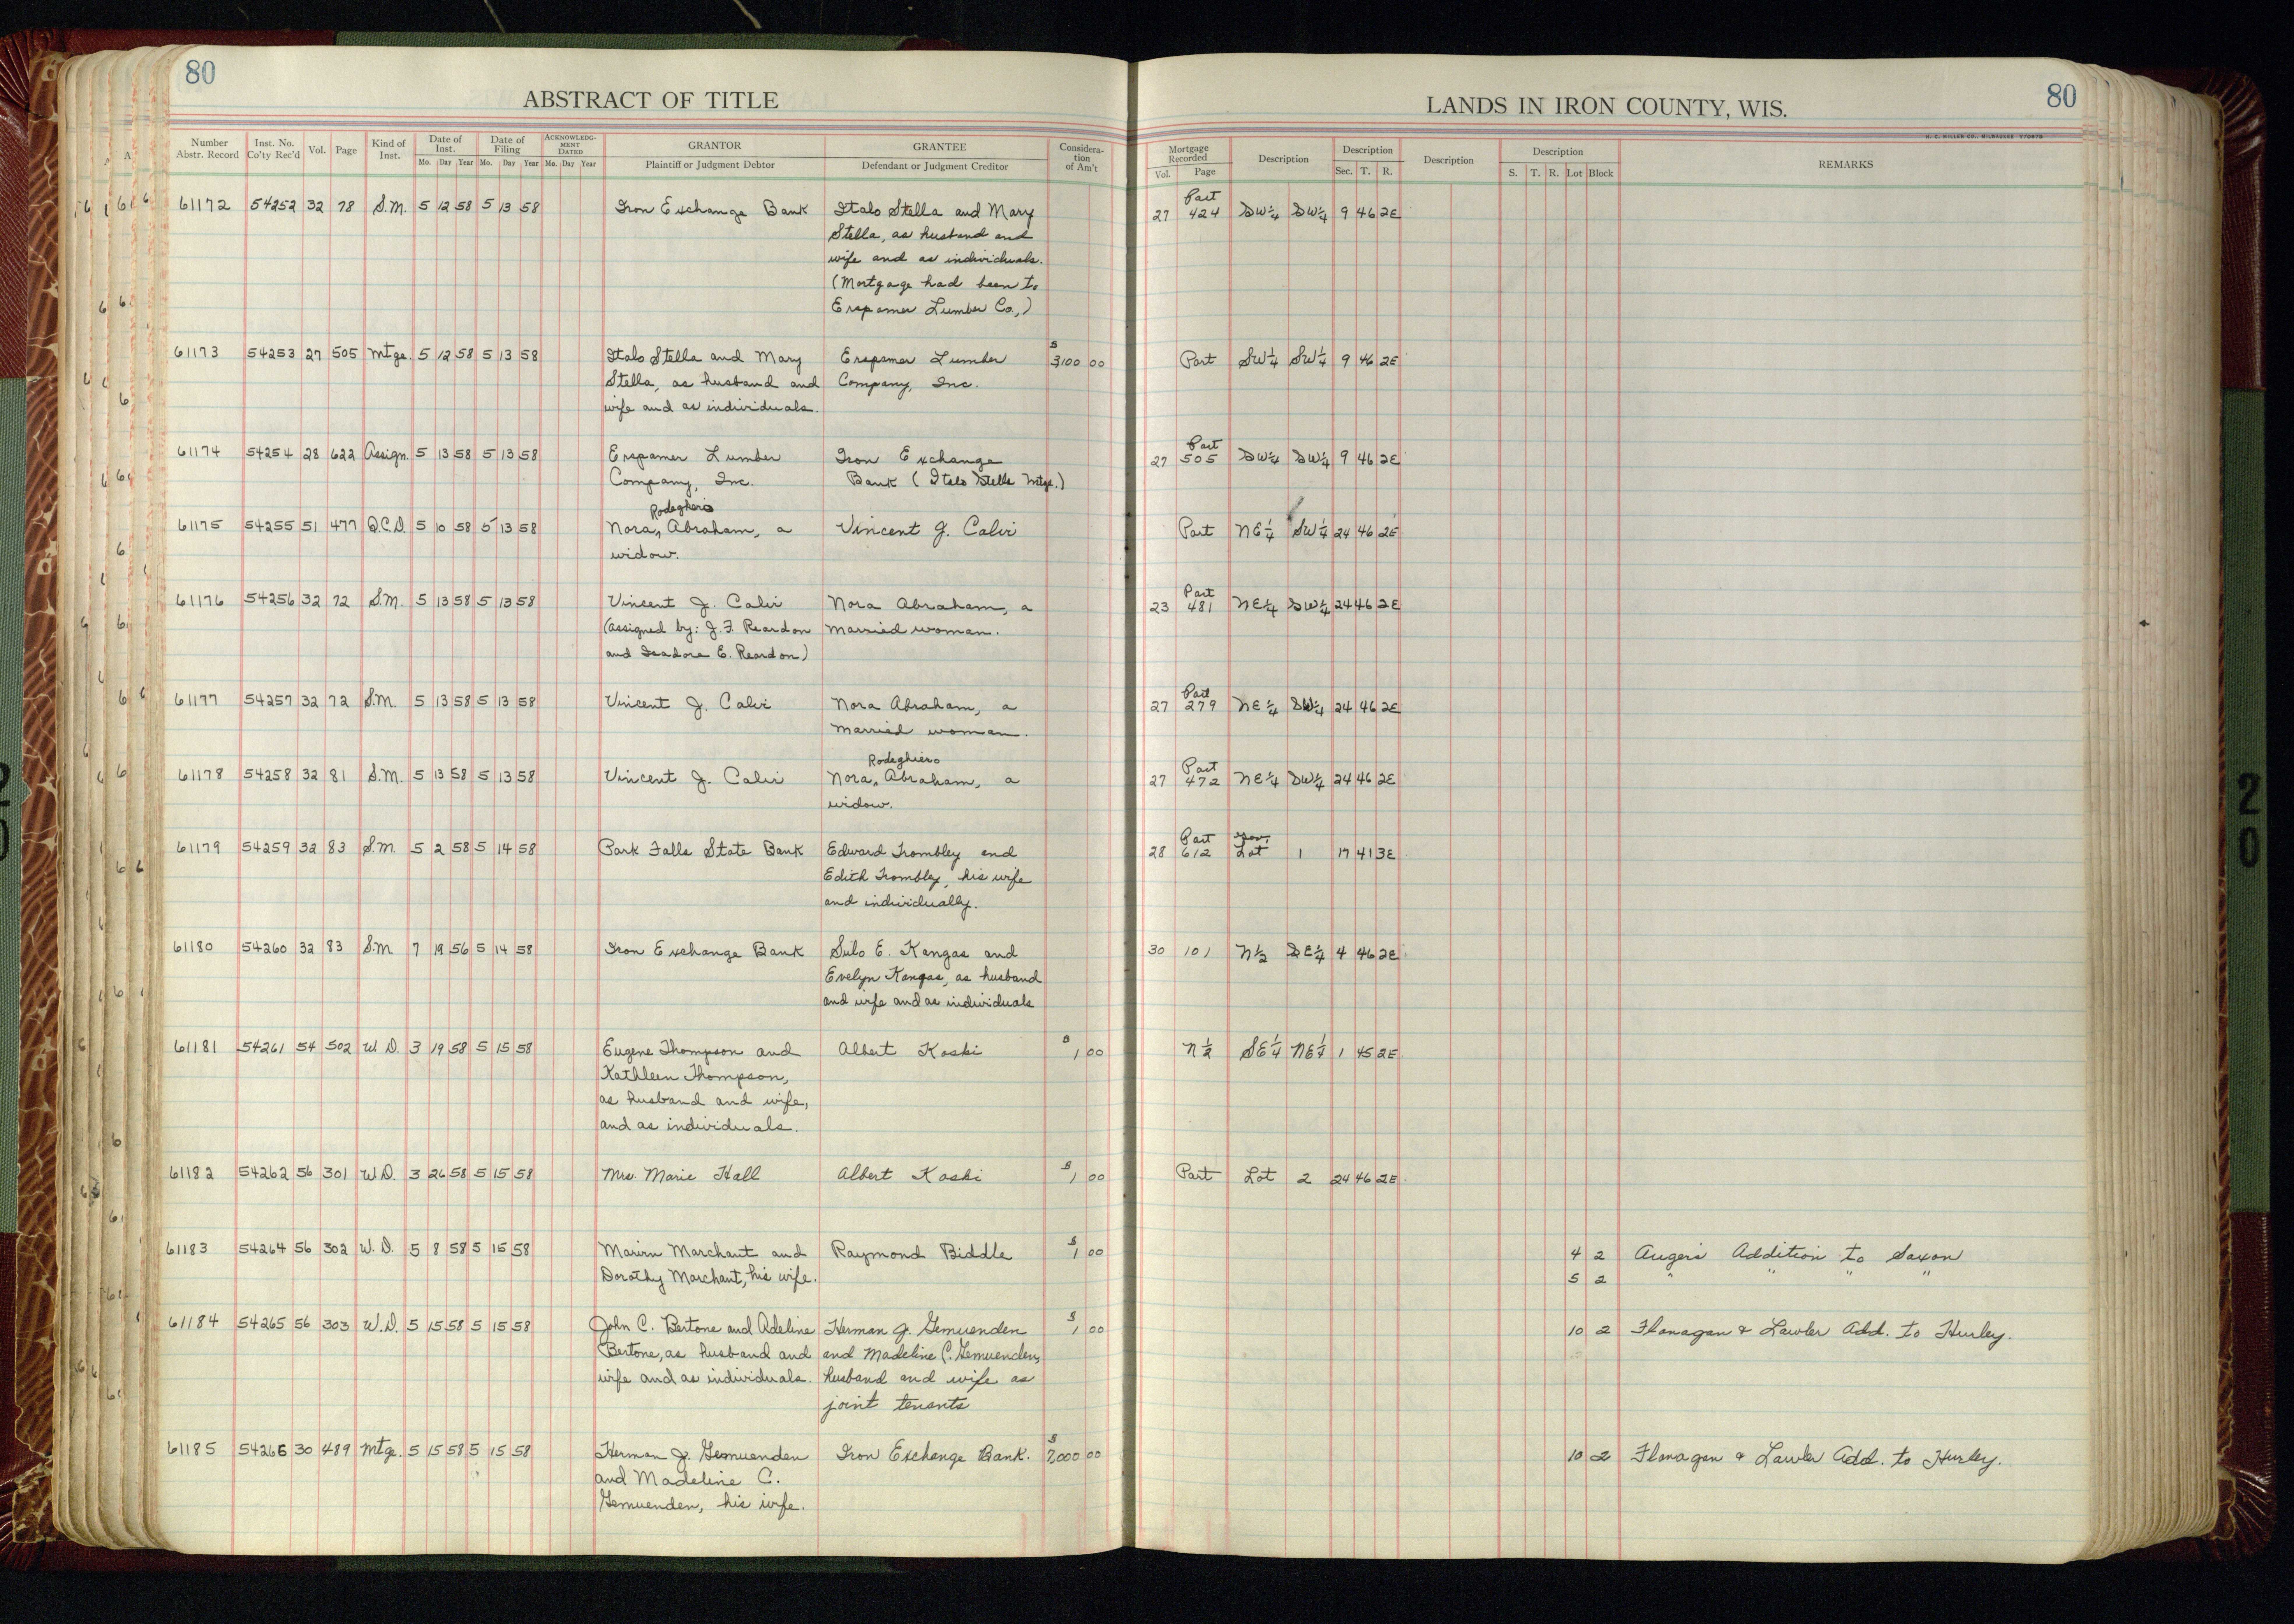 80
ABSTRACT OF TITLE
Number Abstr. Record Inst. No. Co'ty Rec'd Vol. Page Kind of Inst. Date of Inst. Mo. Day Year Date of Filing Mo. Day Year ACKNOWLEDGMENT DATED Mo. Day Year GRANTOR Plaintiff or Judgment Debtor GRANTEE Defendant or Judgment Creditor Consideration of Am't
61172 54252 32 78 S.M. 5 12 58 5 13 58 Iron Exchange Bank Italo Stella and Mary
Stella, as husband and
wife and as individuals.
(Mortgage had been to
Erspamer Lumber Co.,)
61173 54253 27 505 Mtge. 5 12 58 5 13 58 Italo Stella and Mary Erspamer Lumber $3100 00
Stella, as husband and Company, Inc.
wife and as individuals.
61174 54254 28 622 Assign. 5 13 58 5 13 58 Erspamer Lumber Iron Exchange
Company, Inc. Bank (Italo Stella Mtge.)
Rodeghero
61175 54255 51 477 Q.C.D. 5 10 58 5 13 58 Nora Abraham, a Vincent J. Calvi
widow.
61176 54256 32 72 S.M. 5 13 58 5 13 58 Vincent J. Calvi Nora Abraham, a
(Assigned by: J. F. Reardon married woman.
and Isadore E. Reardon)
61177 54257 32 72 S.M. 5 13 58 5 13 58 Vincent J. Calvi Nora Abraham, a
married woman.
Rodeghiero
61178 54258 32 81 S.M. 5 13 58 5 13 58 Vincent J. Calvi Nora Abraham, a
widow.
61179 54259 32 83 S.M. 5 2 58 5 14 58 Park Falls State Bank Edward Trombley and
Edith Trombley, his wife
and individually.
61180 54260 32 83 S.M. 7 19 56 5 14 58 Iron Exchange Bank Sulo E. Kangas and
Evelyn Kangas, as husband
and wife and as individuals
61181 54261 54 502 W.D. 3 19 58 5 15 58 Eugene Thompson and Albert Koski $1 00
Kathleen Thompson,
as husband and wife,
and as individuals.
61182 54262 56 301 W.D. 3 26 58 5 15 58 Mrs. Marie Hall Albert Koski $1 00
61183 54264 56 302 W.D. 5 8 58 5 15 58 Marvin Marchant and Raymond Biddle $1 00
Dorothy Marchant, his wife.
61184 54265 56 303 W.D. 5 15 58 5 15 58 John C. Bertone and Adeline Herman J. Gemuenden $1 00
Bertone, as husband and and Madeline C. Gemuenden,
wife and as individuals. husband and wife as
joint tenants
61185 54266 30 489 Mtge. 5 15 58 5 15 58 Herman J. Gemuenden Iron Exchange Bank. $7000 00
and Madeline C.
Gemuenden, his wife.
80
LANDS IN IRON COUNTY, WIS.
H. C. MILLER CO., MILWAUKEE
Mortgage Recorded Vol. Page Description Description Sec. T. R. Description Description S. T. R. Lot Block REMARKS
Part
27 424 SW¼ SW¼ 9 46 2E
Part SW¼ SW¼ 9 46 2E
Part
27 505 SW¼ SW¼ 9 46 2E
Part NE¼ SW¼ 24 46 2E
Part
23 481 NE¼ SW¼ 24 46 2E
Part
27 279 NE¼ SW¼ 24 46 2E
Part
27 472 NE¼ SW¼ 24 46 2E
Part Gov.
28 612 Lot 1 17 41 3E
30 101 N½ SE¼ 4 46 2E
N½ SE¼ NE¼ 1 45 2E
Part Lot 2 24 46 2E
4 2 Auger's Addition to Saxon
5 2 " " " "
10 2 Flanagan & Lawler Add. to Hurley.
10 2 Flanagan & Lawler Add. to Hurley.
20